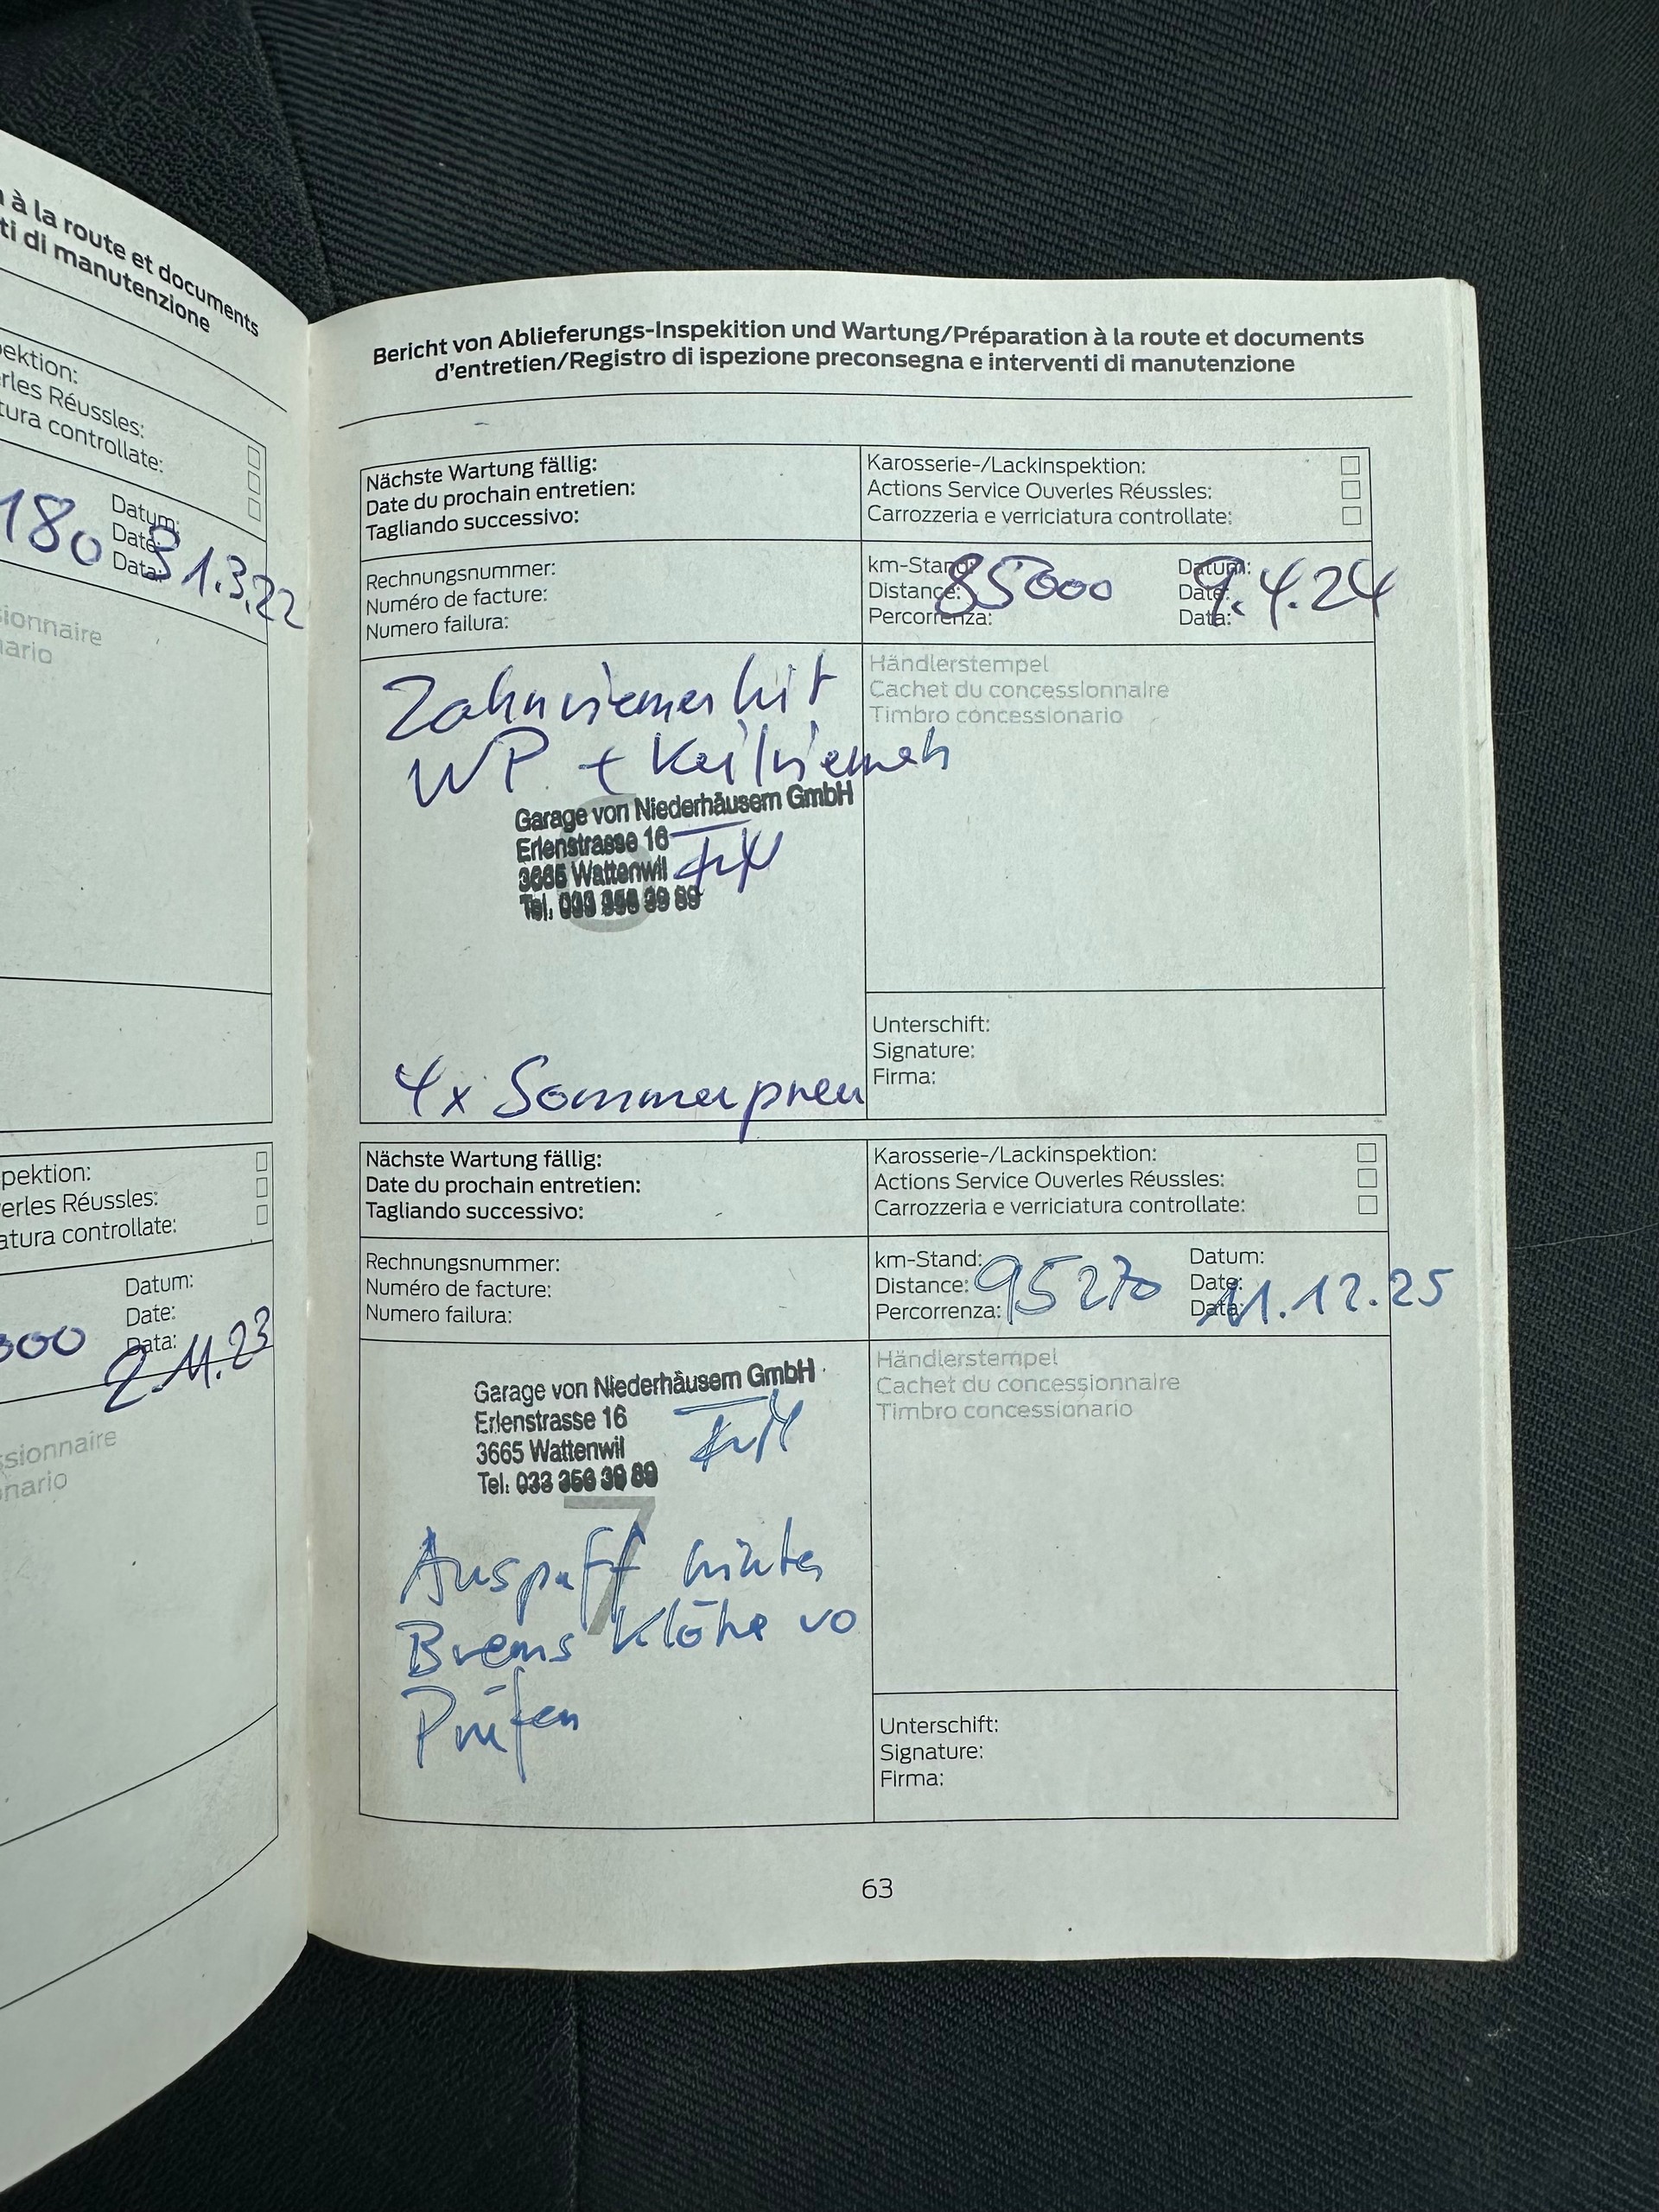 à la route et documents
ti di manutenzione
ektion:
rles Réussles:
tura controllate:
180
Datum:
Date:
Data:
31.3.22
sionnaire
nario
pektion:
erles Réussles:
atura controllate:
Datum:
Date:
Data:
000
2.11.23
ssionnaire
nario
Bericht von Ablieferungs-Inspekition und Wartung/Préparation à la route et documents
d'entretien/Registro di ispezione preconsegna e interventi di manutenzione
Nächste Wartung fällig:
Date du prochain entretien:
Tagliando successivo:
Karosserie-/Lackinspektion:
Actions Service Ouverles Réussles:
Carrozzeria e verriciatura controllate:
Rechnungsnummer:
Numéro de facture:
Numero failura:
km-Stand:
Distance:
Percorrenza:
85000
Datum:
Date:
Data:
9.4.24
Zahnriemenkit
WP + Keilriemen
6
Garage von Niederhäusern GmbH
Erlenstrasse 16
3665 Wattenwil
Tel. 033 356 39 89
4x Sommerpneu
Händlerstempel
Cachet du concessionnaire
Timbro concessionario
Unterschift:
Signature:
Firma:
Nächste Wartung fällig:
Date du prochain entretien:
Tagliando successivo:
Karosserie-/Lackinspektion:
Actions Service Ouverles Réussles:
Carrozzeria e verriciatura controllate:
Rechnungsnummer:
Numéro de facture:
Numero failura:
km-Stand:
Distance:
Percorrenza:
95270
Datum:
Date:
Data:
11.12.25
Garage von Niederhäusern GmbH
Erlenstrasse 16
3665 Wattenwil
Tel. 033 356 39 89
7
Auspuff hinten
Brems Klötze vo
Prüfen
Händlerstempel
Cachet du concessionnaire
Timbro concessionario
Unterschift:
Signature:
Firma:
63